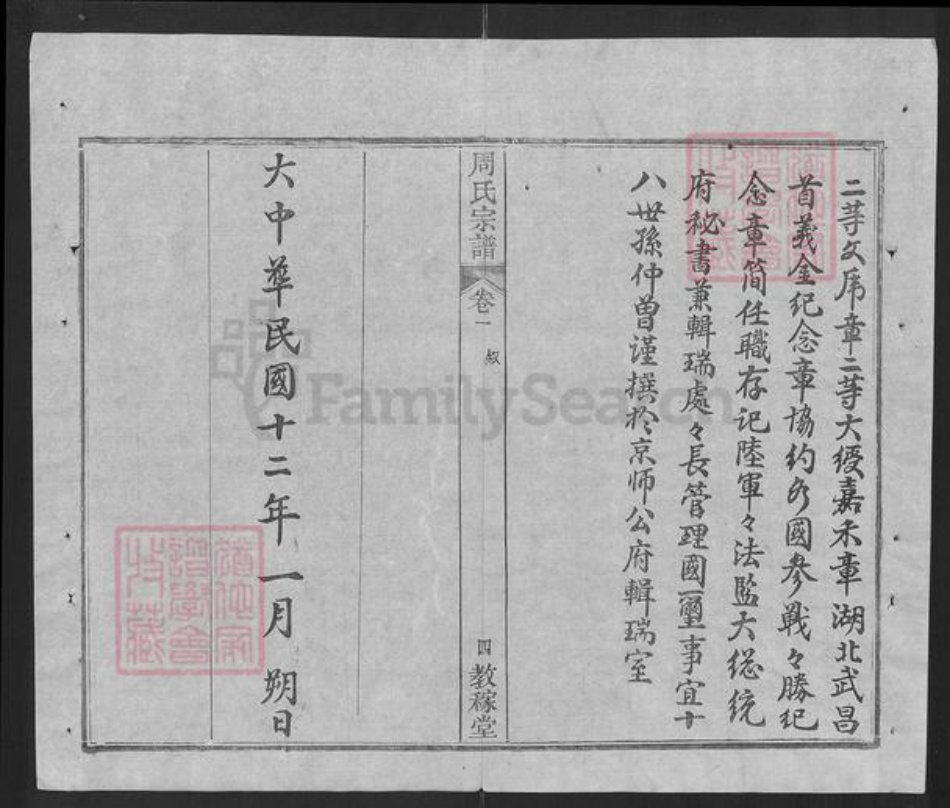 二等文虎章二等大綬嘉禾章湖北武昌
首義金紀念章協約各國參戰々勝紀
念章簡任職存記陸軍々法監大總統
府秘書兼輯瑞處々長管理國璽事宜十
八世孫仲曾謹撰於京师公府輯瑞室
周氏宗譜 卷一 叙 四 教稼堂
大中華民國十二年一月朔日
FamilySearch